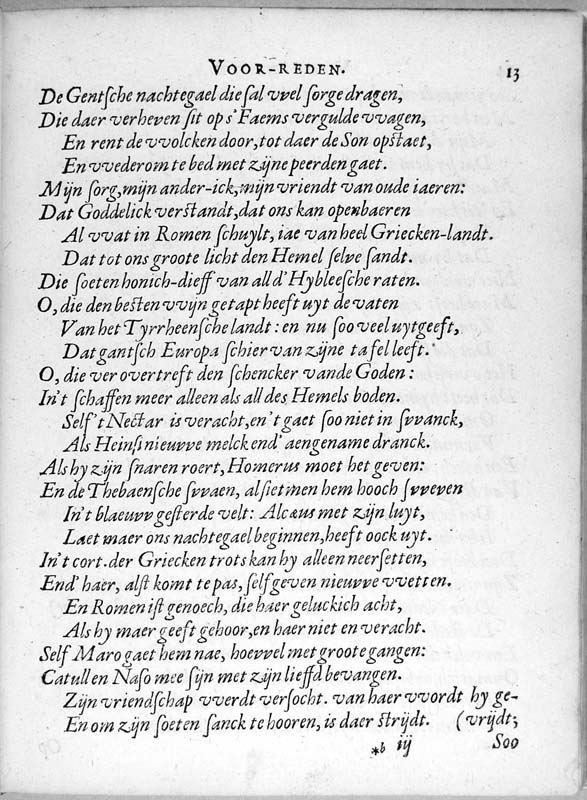 VOOR-REDEN. 13
De Gentsche nachtegael die sal vvel sorge dragen,
Die daer verheven sit op s'Faems vergulde vvagen,
En rent de vvolcken door, tot daer de Son opstaet,
En vvederom te bed met zijne peerden gaet.
Mijn sorg, mijn ander-ick, mijn vriendt van oude iaeren:
Dat Goddelick verstandt, dat ons kan openbaeren
Al vvat in Romen schuylt, iae van heel Griecken-landt.
Dat tot ons groote licht den Hemel selve sandt.
Die soeten honich-dieff van all d'Hybleesche raten.
O, die den besten vvijn getapt heeft uyt de vaten
Van het Tyrrheensche landt: en nu soo veel uytgeeft,
Dat gantsch Europa schier van zijne tafel leeft.
O, die ver overtreft den schencker vande Goden:
In't schaffen meer alleen als all des Hemels boden.
Self 't Nectar is veracht, en 't gaet soo niet in svvanck,
Als Heinsi nieuvve melck end' aengename dranck.
Als hy zijn snaren roert, Homerus moet het geven:
En de Thebaensche svvaen, al siet men hem hooch svveven
In't blaeuvv gesterde velt: Alcæus met zijn luyt,
Laet maer ons nachtegael beginnen, heeft oock uyt.
In't cort. der Griecken trots kan hy alleen neersetten,
End' haer, alst komt te pas, self geven nieuvve vvetten.
En Romen ist genoech, die haer geluckich acht,
Als hy maer geeft gehoor, en haer niet en veracht.
Self Maro gaet hem nae, hoevvel met groote gangen:
Catull en Naso mee sijn met zijn lieffd bevangen.
Zijn vriendschap vverdt versocht. van haer vvordt hy ge-
En om zijn soeten sanck te hooren, is daer strijdt. (vrijdt;
*b iij Soo